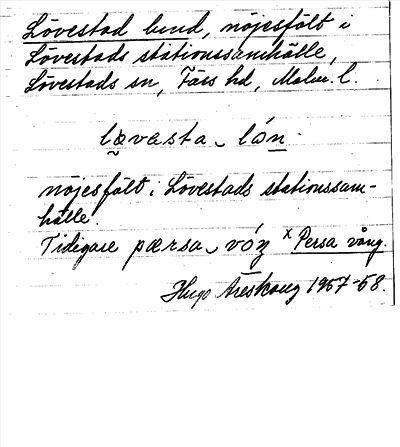 Lövestad lund, nöjesfält i
Lövestads stationssamhälle,
Lövestads sn, Färs hd, Malm. l.
lœvasta lón
nöjesfält i Lövestads stationssam-
hälle.
Tidigare pærsa vóŋ x Persa vång.
Hugo Areskoug 1957-58.